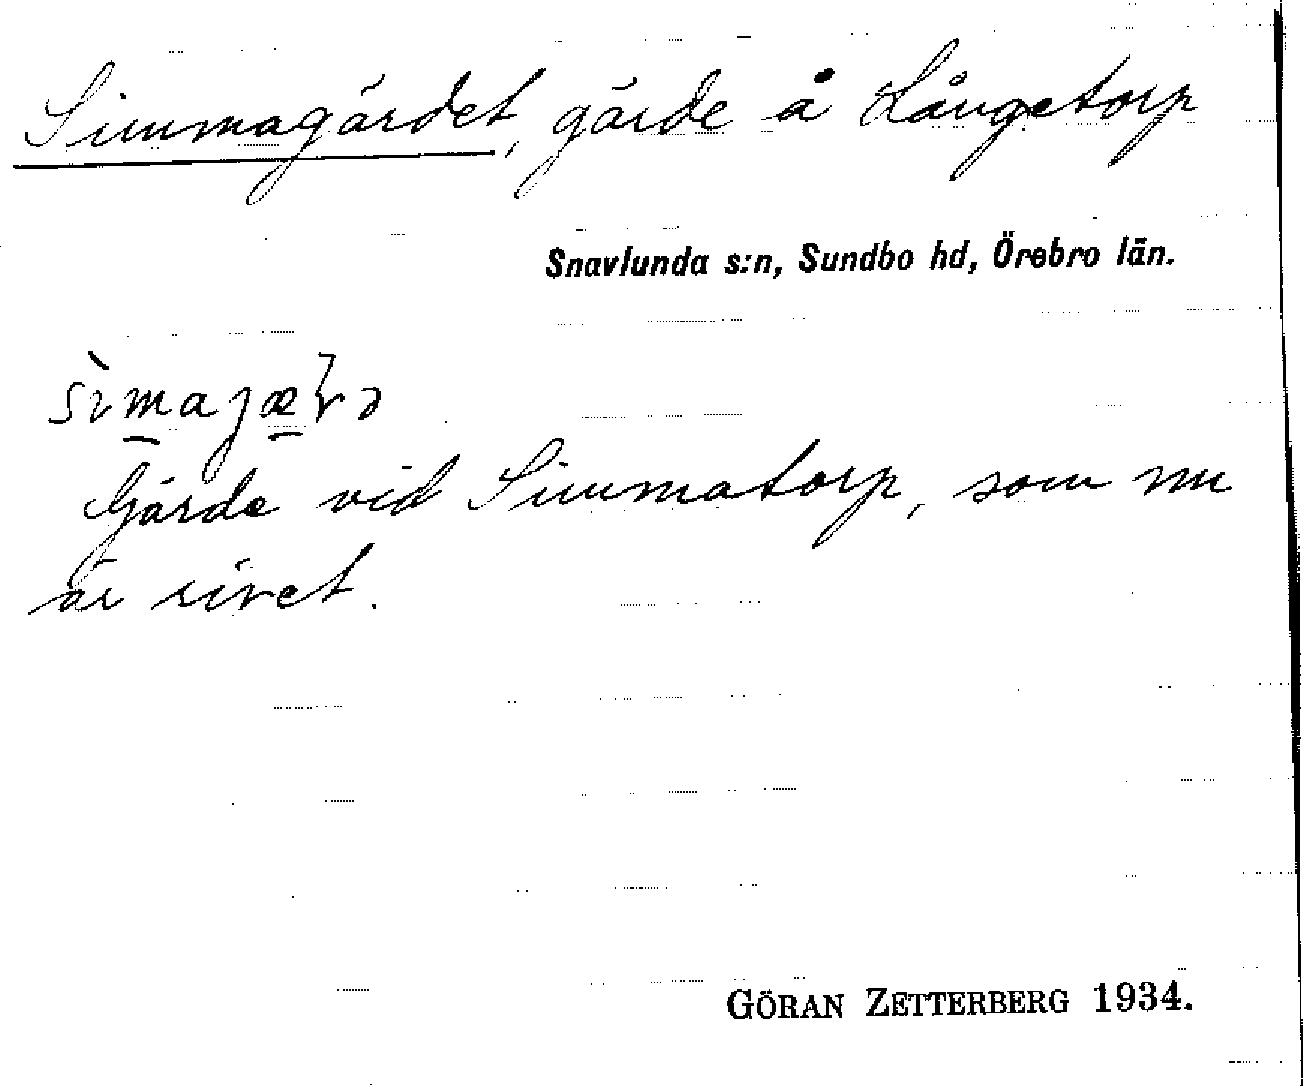 Simmagärdet, gärde å Långetorp
Snavlunda s:n, Sundbo hd, Örebro län.
Gärde vid Simmatorp, som nu
är rivet.
GÖRAN ZETTERBERG 1934.